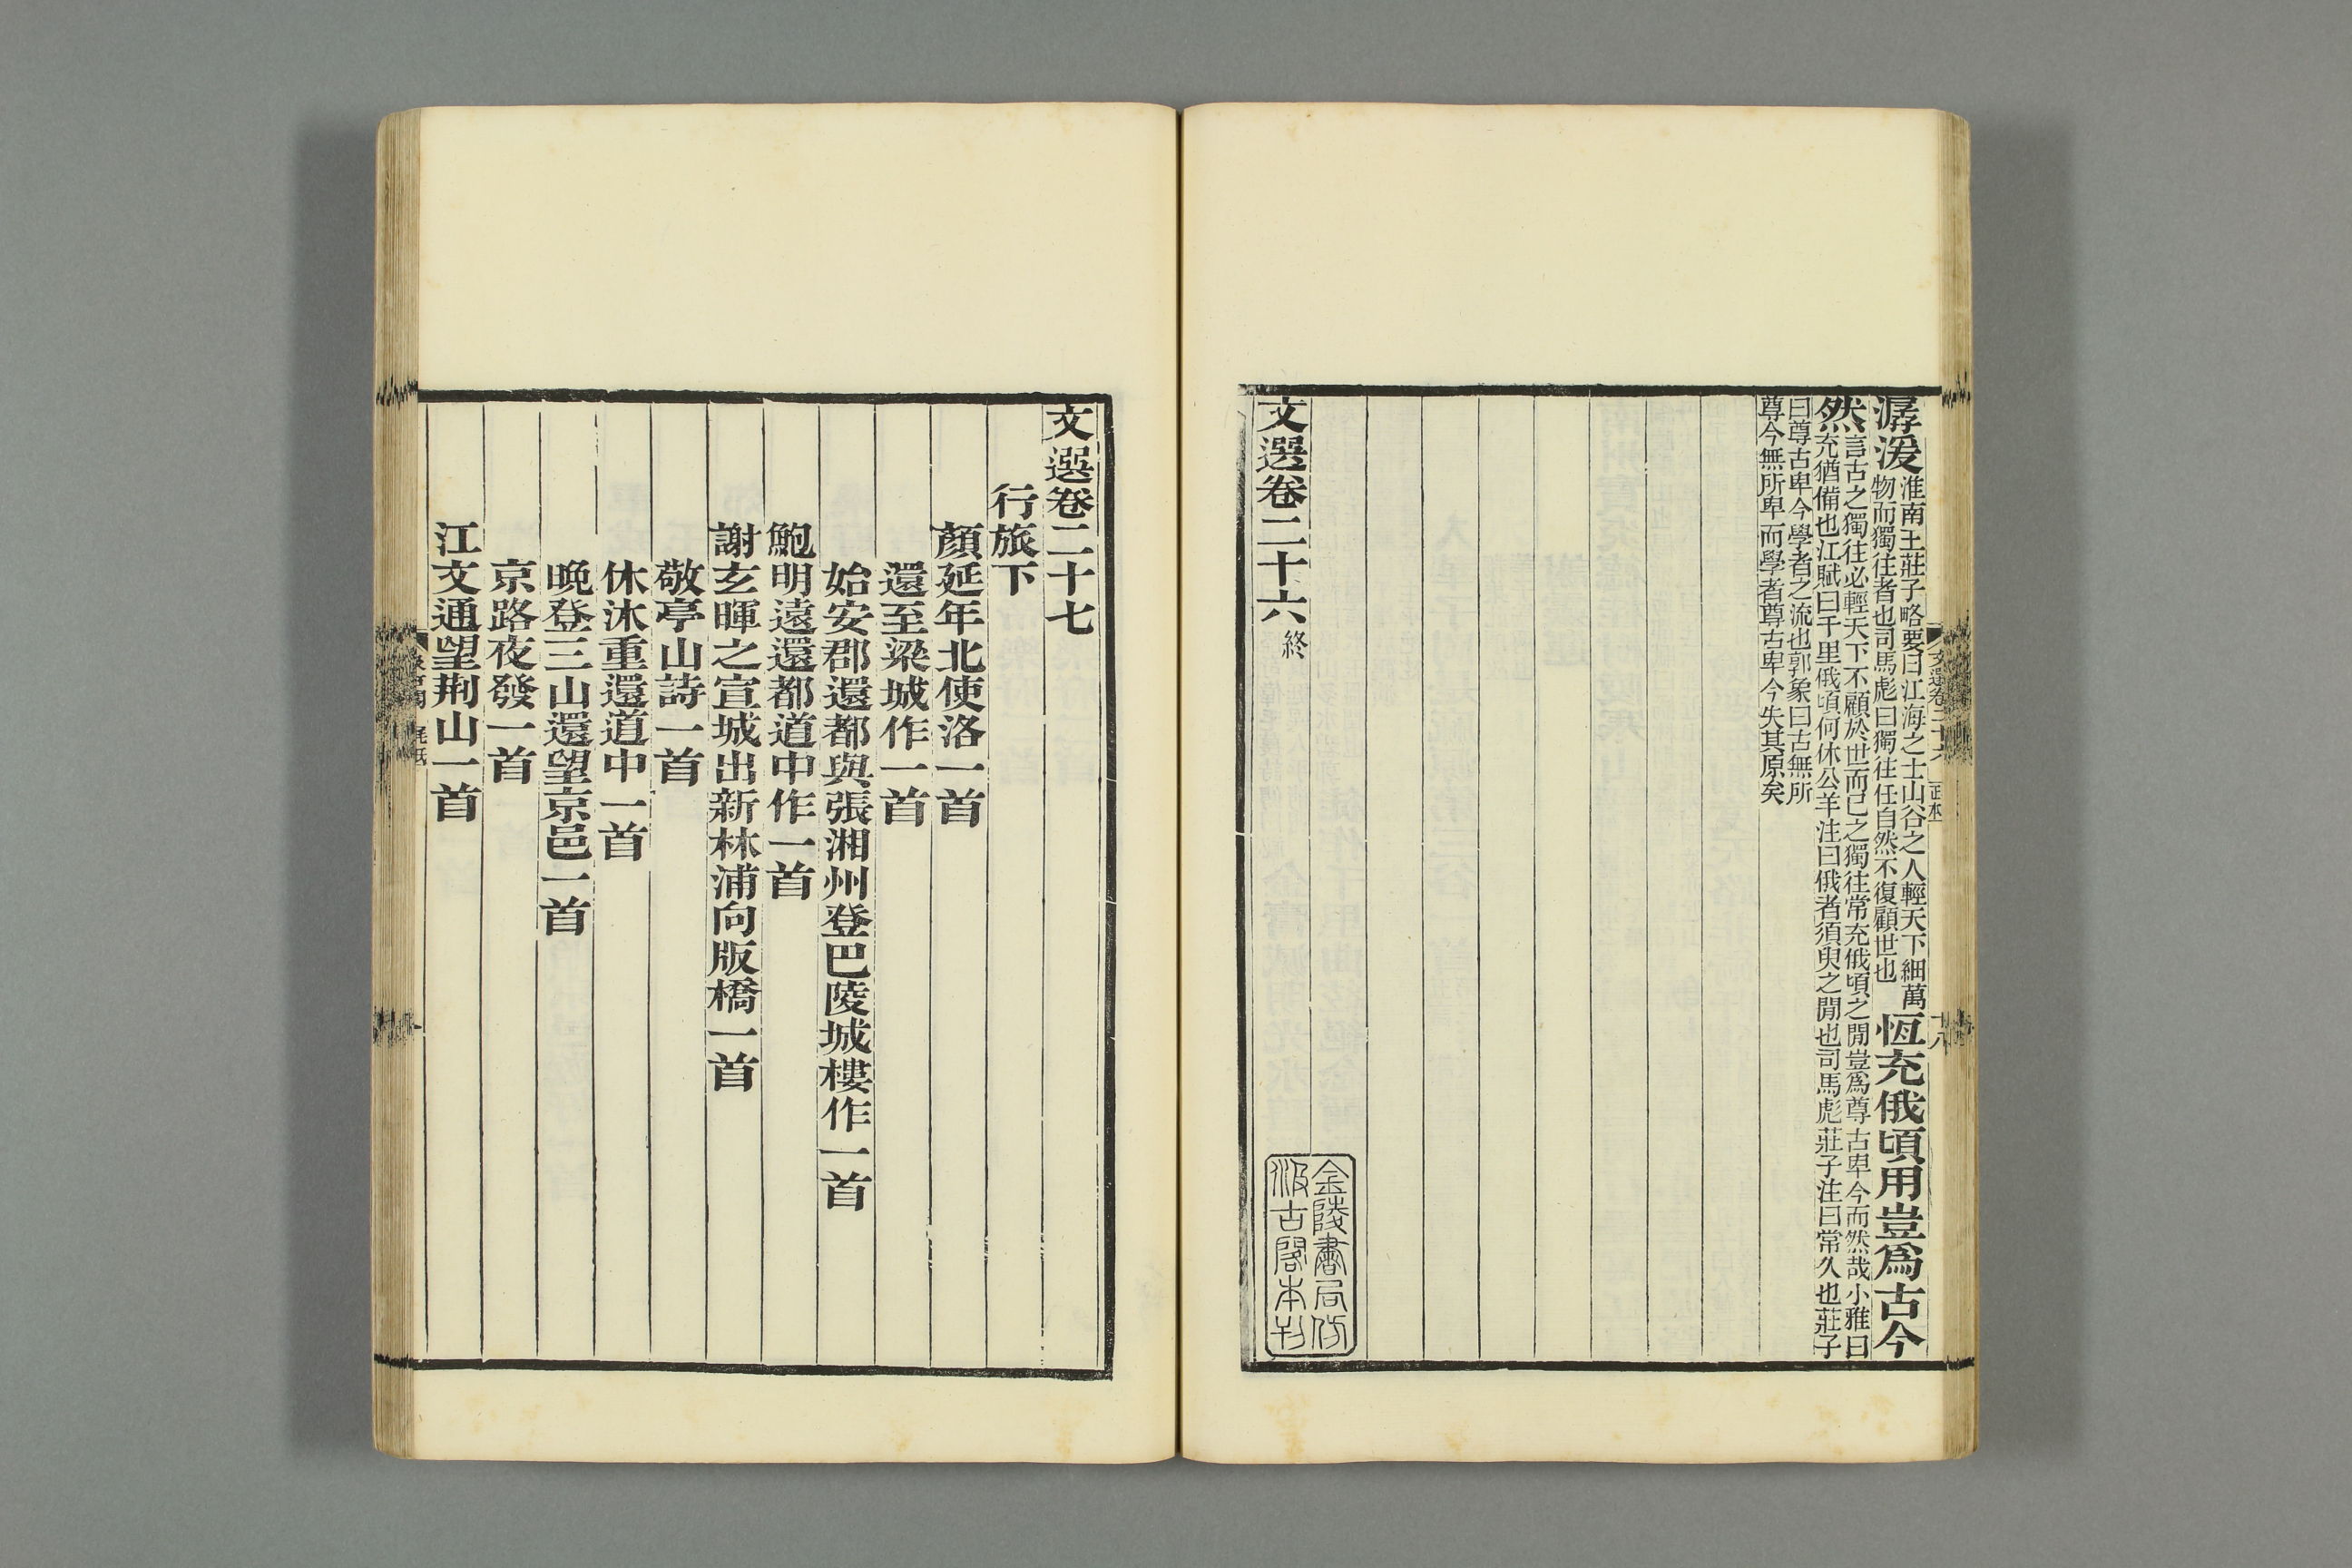 潺湲淮南王莊子略要曰江海之士山谷之人輕天下細萬物而獨往者也司馬彪曰獨往任自然不復顧世也恆充俄頃用豈爲古今
然言古之獨往必輕天下不顧於世而已之獨往常充俄頃之閒豈爲尊古卑今而然哉小雅曰
充猶備也江賦曰千里俄頃何休公羊注曰俄者須臾之閒也司馬彪莊子注曰常久也莊子
曰尊古卑今學者之流也郭象曰古無所
尊今無所卑而學者尊古卑今失其原矣
文選卷二十六終
金陵書局仿
汲古閣本刊
文選卷二十六
十八
文選卷二十七
行旅下
顏延年北使洛一首
還至梁城作一首
始安郡還都與張湘州登巴陵城樓作一首
鮑明遠還都道中作一首
謝玄暉之宣城出新林浦向版橋一首
敬亭山詩一首
休沐重還道中一首
晚登三山還望京邑一首
京路夜發一首
江文通望荆山一首